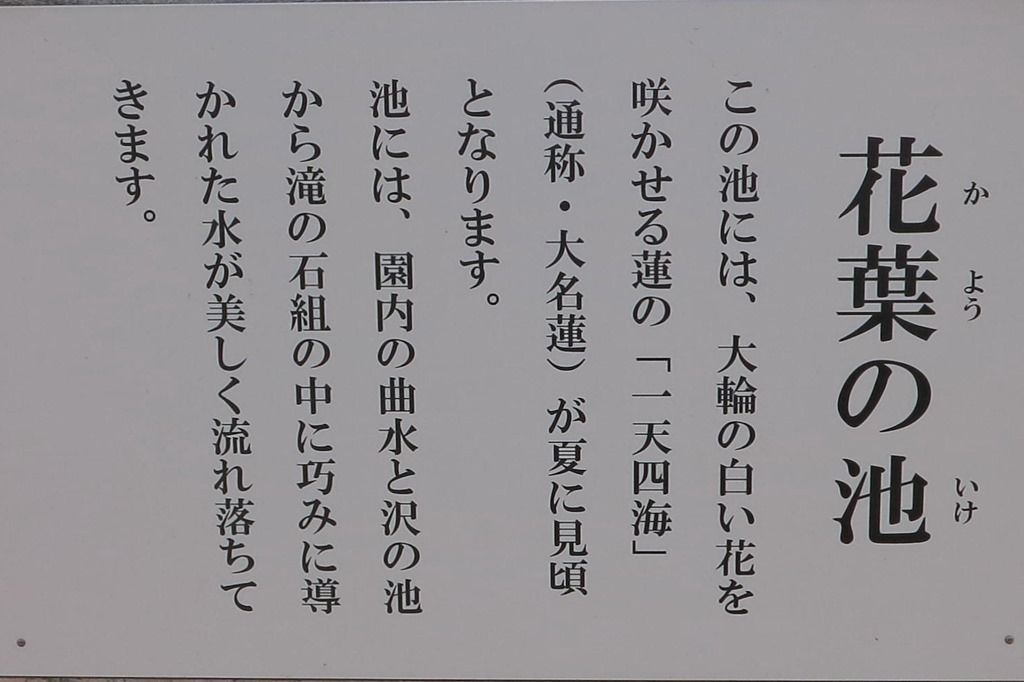 花葉の池
か よう いけ
この池には、大輪の白い花を
咲かせる蓮の「一天四海」
（通称・大名蓮）が夏に見頃
となります。
池には、園内の曲水と沢の池
から滝の石組の中に巧みに導
かれた水が美しく流れ落ちて
きます。